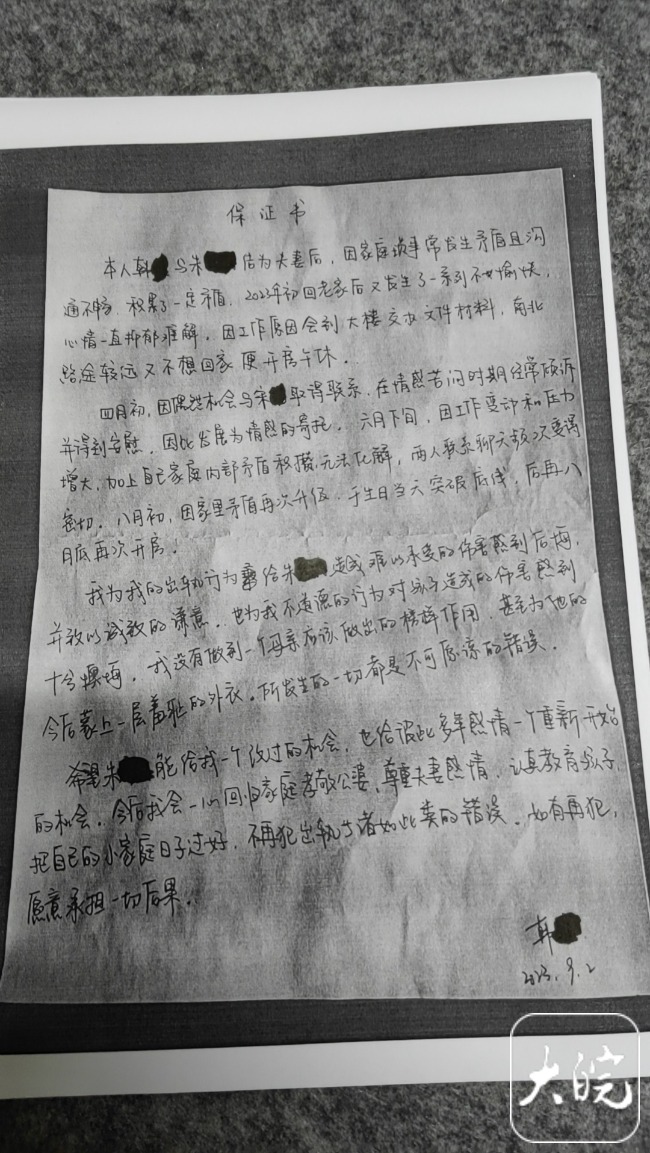 保证书
本人韩 与朱 结为夫妻后，因家庭琐事常发生矛盾且沟
通不畅，积累了一定矛盾，2023年初回老家后又发生了一系列不愉快，
心情一直抑郁难解，因工作原因会到大楼交办文件材料，南北
路途较远又不想回家便开房午休。
四月初，因偶然机会与宋 取得联系，在情感苦闷时期经常倾诉
并得到安慰，因此发展为情感的寄托。六月下旬，因工作变动和压力
增大，加上自己家庭内部矛盾积攒无法化解，两人联系聊天频次变得
密切。八月初，因家里矛盾再次升级，于生日当天突破底线，后再八
月底再次开房！
我为我的出轨行为 给朱 造成难以承受的伤害感到后悔，
并致以诚致的谦意，也为我不道德的行为对孩子造成的伤害感到
十分懊悔，我没有做到一个母亲应该做出的榜样作用，甚至为他的
今后蒙上一层羞耻的外衣。所发生的一切都是不可原谅的错误。
希望朱 能给我一个改过的机会，也给彼此多年感情一个重新开始
的机会。今后我会一心回归家庭孝敬公婆，尊重夫妻感情，认真教育孩子，
把自己的小家庭日子过好，不再犯出轨 诸如此类的错误。如有再犯，
愿意承担一切后果。
韩
2023.9.2
大皖